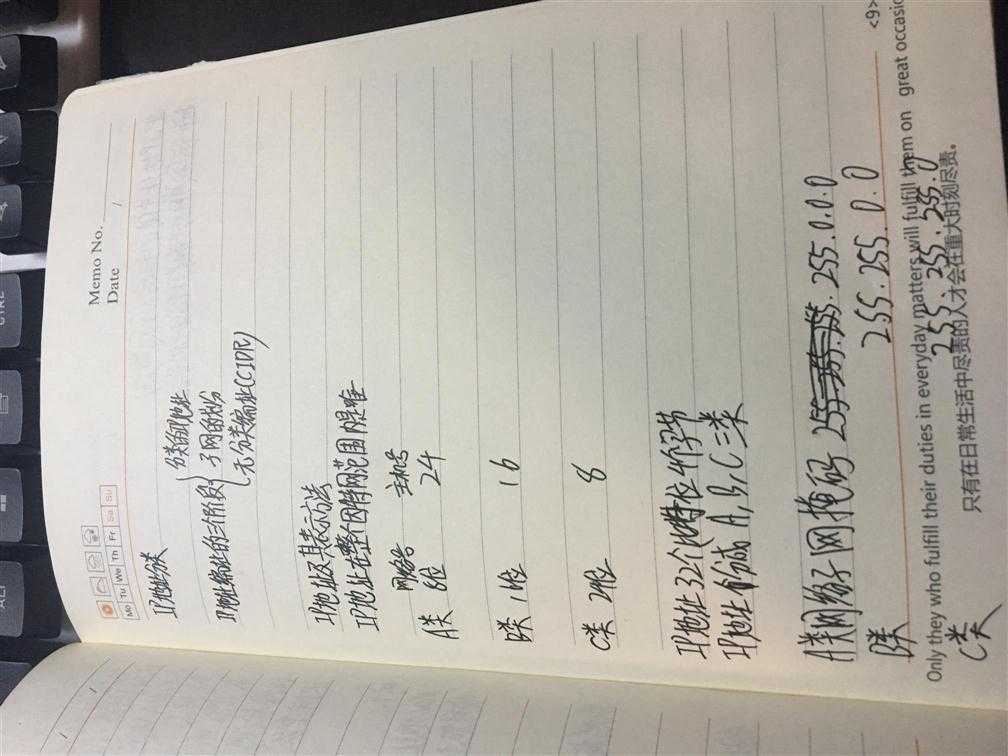 Memo No.
Date / /
Mo Tu We Th Fr Sa Su
IP地址分类
分类的IP地址
IP地址编址的三个阶段 子网的划分
无分类编址(CIDR)
IP地址及其表示方法
IP地址在整个因特网范围内是唯一
网络号 主机号
A类 8位 24
B类 16位 16
C类 24位 8
IP地址32个比特位 4个字节
IP地址 分成 A, B, C 三类
A类网络子网掩码 255.0.0.0
B类 255.255.0.0
Only they who fulfill their duties in everyday matters will fulfill them on great occasio
C类 255.255.255.0
只有在日常生活中尽责的人才会在重大时刻尽责。
<9>
CTRL
ALT